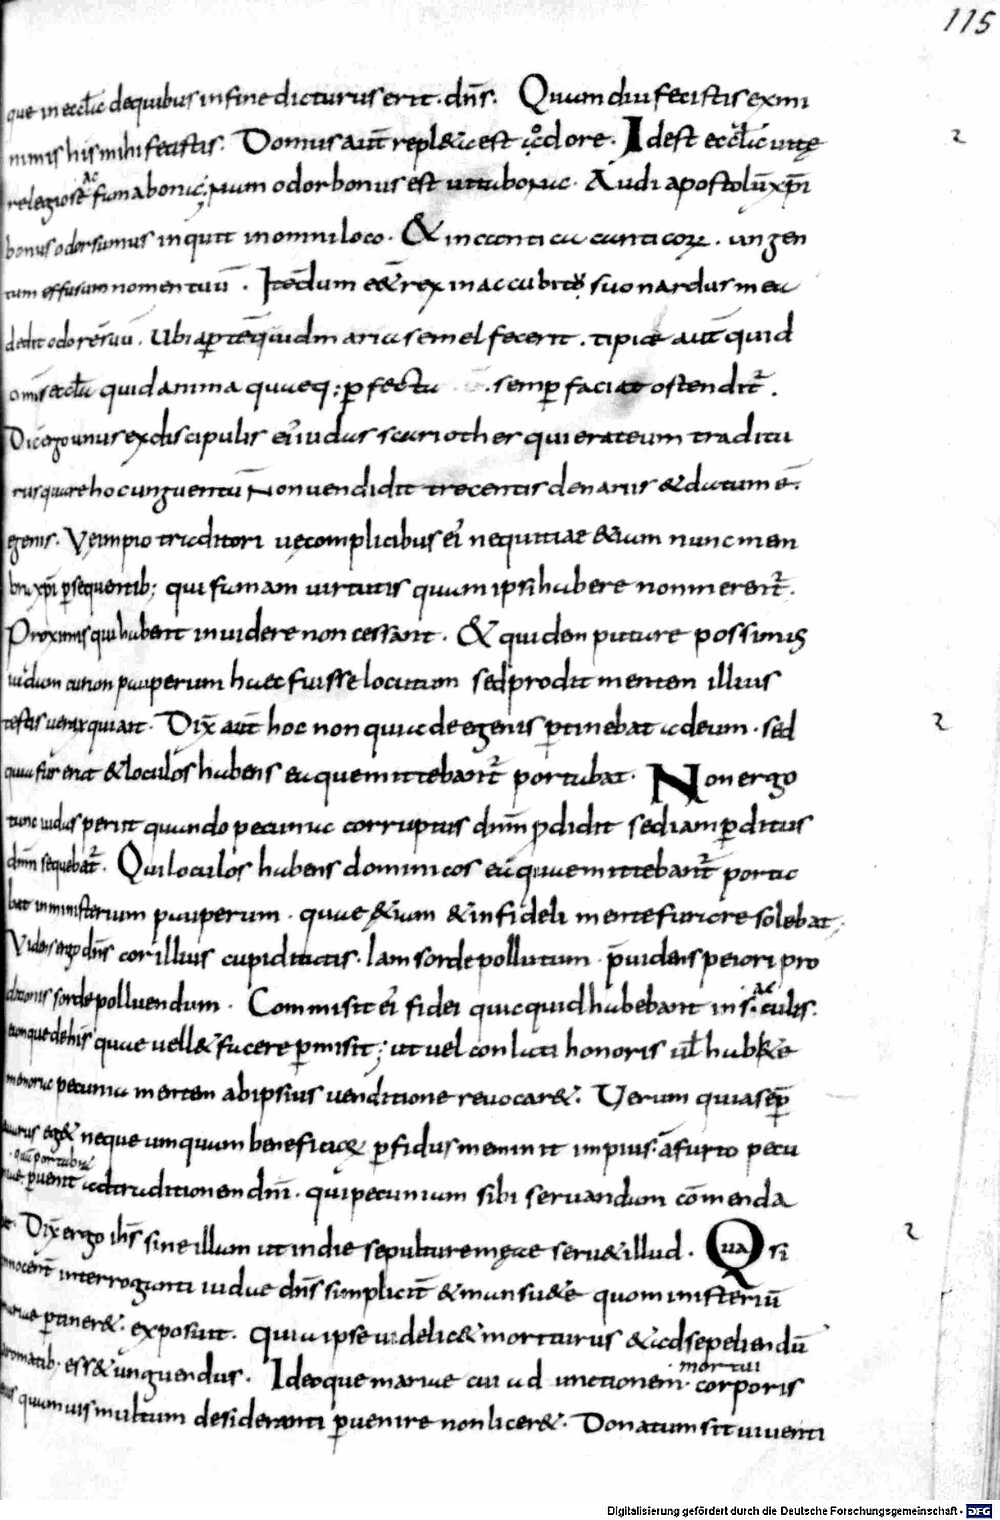 115
que in ecclā de quibus in fine dicturus erit. dñs. Quum diu fecistis ex mi
nimis his mihi fecistis. Domus aut̄ repl& a est odore. Id est ecclā uitę
relegiosę ac fama bonā; Nam odor bonus est uita bona. Audi apostolū xp̄i
bonus odor sumus inquit in omni loco. & in cantica canticorꝝ. ungen
tum effusum nomen tuū. Itedum e& rex in accubitꝰ suo nardus mea
dedit odorē suū. Ubi aꝑte quid maria semel fecerit. tipice aut̄ quid
omīs ecclā quid anima quaeq; ꝑfecta semꝑ faciat ostendit̃.
Dic ergo unus ex discipulis ei iudas scarioth er qui erat eum traditu
rus quare hoc unguentū Non uendidit trecentis denariis & datum ē.
egenis. Vę impio traditori uę complicibus ei nequitiae & iam nunc mem
bra xp̄i ꝑsequentib; qui famam uirtutis quam ipsi habere non merent̃.
Proximis qui habent inuidere non cessant. & quidem putare possimus
iudam cur non pauperum haec fuisse locutum sed prodit mentem illius
testis uerax qui ait. Dix̄ aut̄ hoc non quia de egenis ꝑtinebat ad eum. sed
quia fur erat & loculos habens ea que mittebant̃ portabat. Non ergo
tunc iudas perit quando pecuniae corruptus dnm̄ ꝓdidit sed iam ꝑditus
dnm̄ sequebat̃. Qui loculos habens dominicos ea quae mittebant̃ porta
bat in ministerium pauperum. quae &iam & infideli mente furare solebat;
Videns ergo dñs cor illius cupiditatis. Iam sorde pollutum. p̄uidens peiori pro
ditionis sorde polluendum. Commisit ei fidei quicquid habebant in sac culis.
eumque de his quae uell& facere ꝑmisit; ut uel conlati honoris uł hab&e
memoriae pecunia mentem ab ipsius uenditione reuocar&. Verum quia semꝑ
auarus eg& neque umquam beneficiis ꝑfidus meminit impius. a furto pecu
niae quā portabat ꝑuenit ad traditionem dnī. qui pecuniam sibi seruandam cōmenda
bat. Dix̄ ergo ihs̄ sine illam ut in die sepulture męae seru& illud. Qua si
innocent̄ interroganti iudae dñs simplicit̄ & mansu&e quo ministeriū
mariae ꝑtiner&. exposuit. quia ipse uidelic& moriturus & ad sepeliendū
aromatib; ess& unguendus. Ideoque mariae cui ad unctionem mortui corporis
eius quamuis multum desideranti ꝑuenire non licer&. Donatum sit uiuenti
Digitalisierung gefördert durch die Deutsche Forschungsgemeinschaft - DFG